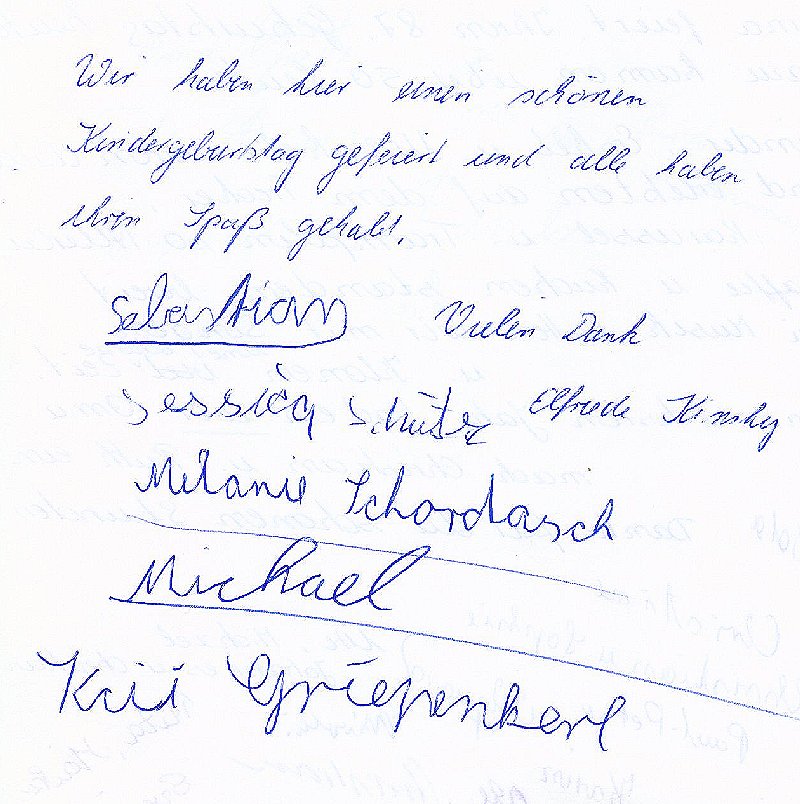 Wir haben hier einen schönen
Kindergeburtstag gefeiert und alle haben
ihren Spaß gehabt.
Sebastian
Vielen Dank
Jessica Schütz
Elfriede Kinsky
Melanie Schordasch
Michael
Griepenkerl